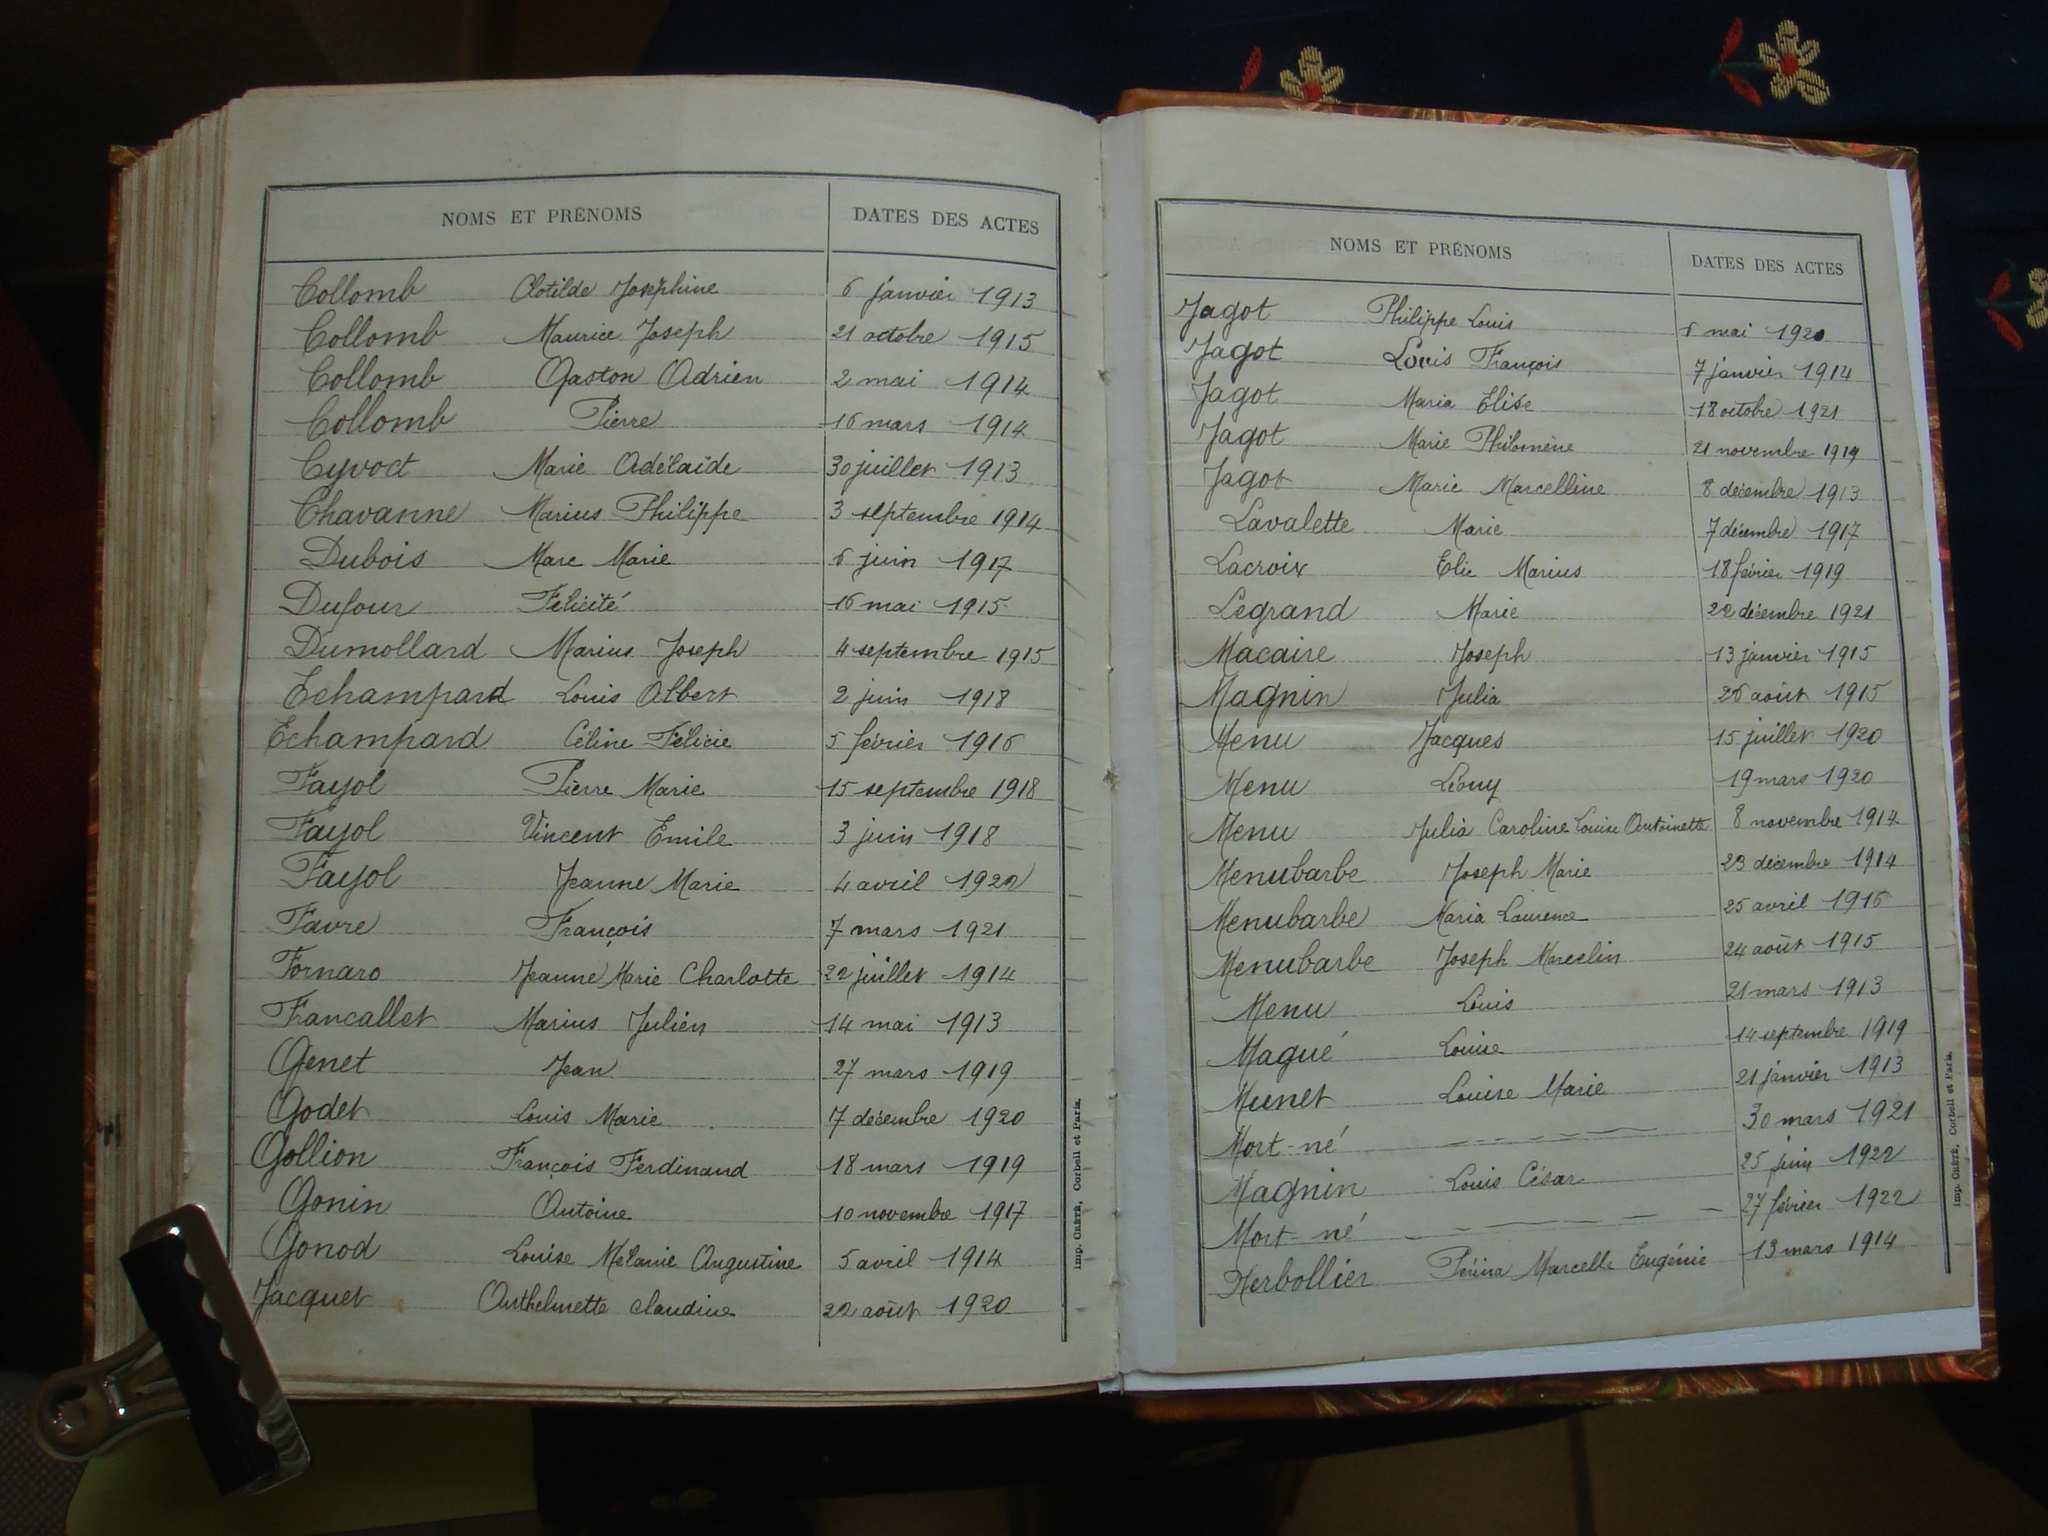 NOMS ET PRÉNOMS DATES DES ACTES
Collomb Clotilde Joséphine 6 janvier 1913
Collomb Maurice Joseph 21 octobre 1915
Collomb Gaston Adrien 2 mai 1914
Collomb Pierre 16 mars 1914
Cyvoct Marie Adélaïde 30 juillet 1913
Chavanne Marius Philippe 3 septembre 1914
Dubois Marc Marie 6 juin 1917
Dufour Félicité 16 mai 1915
Dumollard Marius Joseph 4 septembre 1915
Echampard Louis Albert 2 juin 1918
Echampard Céline Félicie 5 février 1916
Fayol Pierre Marie 15 septembre 1918
Fayol Vincent Emile 3 juin 1918
Fayol Jeanne Marie 4 avril 1922
Favre François 7 mars 1921
Fornaro Jeanne Marie Charlotte 22 juillet 1914
Francallet Marius Julien 14 mai 1913
Genet Jean 27 mars 1919
Godet Louis Marie 7 décembre 1920
Gollion François Ferdinand 18 mars 1919
Gonin Antoine 10 novembre 1917
Gonod Louise Mélanie Augustine 5 avril 1914
Jacquet Anthelmette Claudine 22 août 1920
Imp. CRÉTÉ, Corbeil et Paris.
NOMS ET PRÉNOMS DATES DES ACTES
Jagot Philippe Louis 6 mai 1920
Jagot Louis François 7 janvier 1914
Jagot Maria Elise 18 octobre 1921
Jagot Marie Philomène 21 novembre 1919
Jagot Marie Marcelline 8 décembre 1913
Lavalette Marie 7 décembre 1917
Lacroix Elie Marius 18 février 1919
Legrand Marie 22 décembre 1921
Macaire Joseph 13 janvier 1915
Magnin Julia 26 août 1915
Menu Jacques 15 juillet 1920
Menu Léony 19 mars 1920
Menu Julia Caroline Louise Antoinette 8 novembre 1914
Menubarbe Joseph Marie 23 décembre 1914
Menubarbe Maria Laurence 25 avril 1916
Menubarbe Joseph Marcelin 24 août 1915
Menu Louis 21 mars 1913
Magué Louise 14 septembre 1919
Munet Louise Marie 21 janvier 1913
Mort-né 30 mars 1921
Magnin Louis César 25 juin 1922
Mort-né 27 février 1922
Herbollier Marcelle Eugénie 13 mars 1914
Imp. CRÉTÉ, Corbeil et Paris.